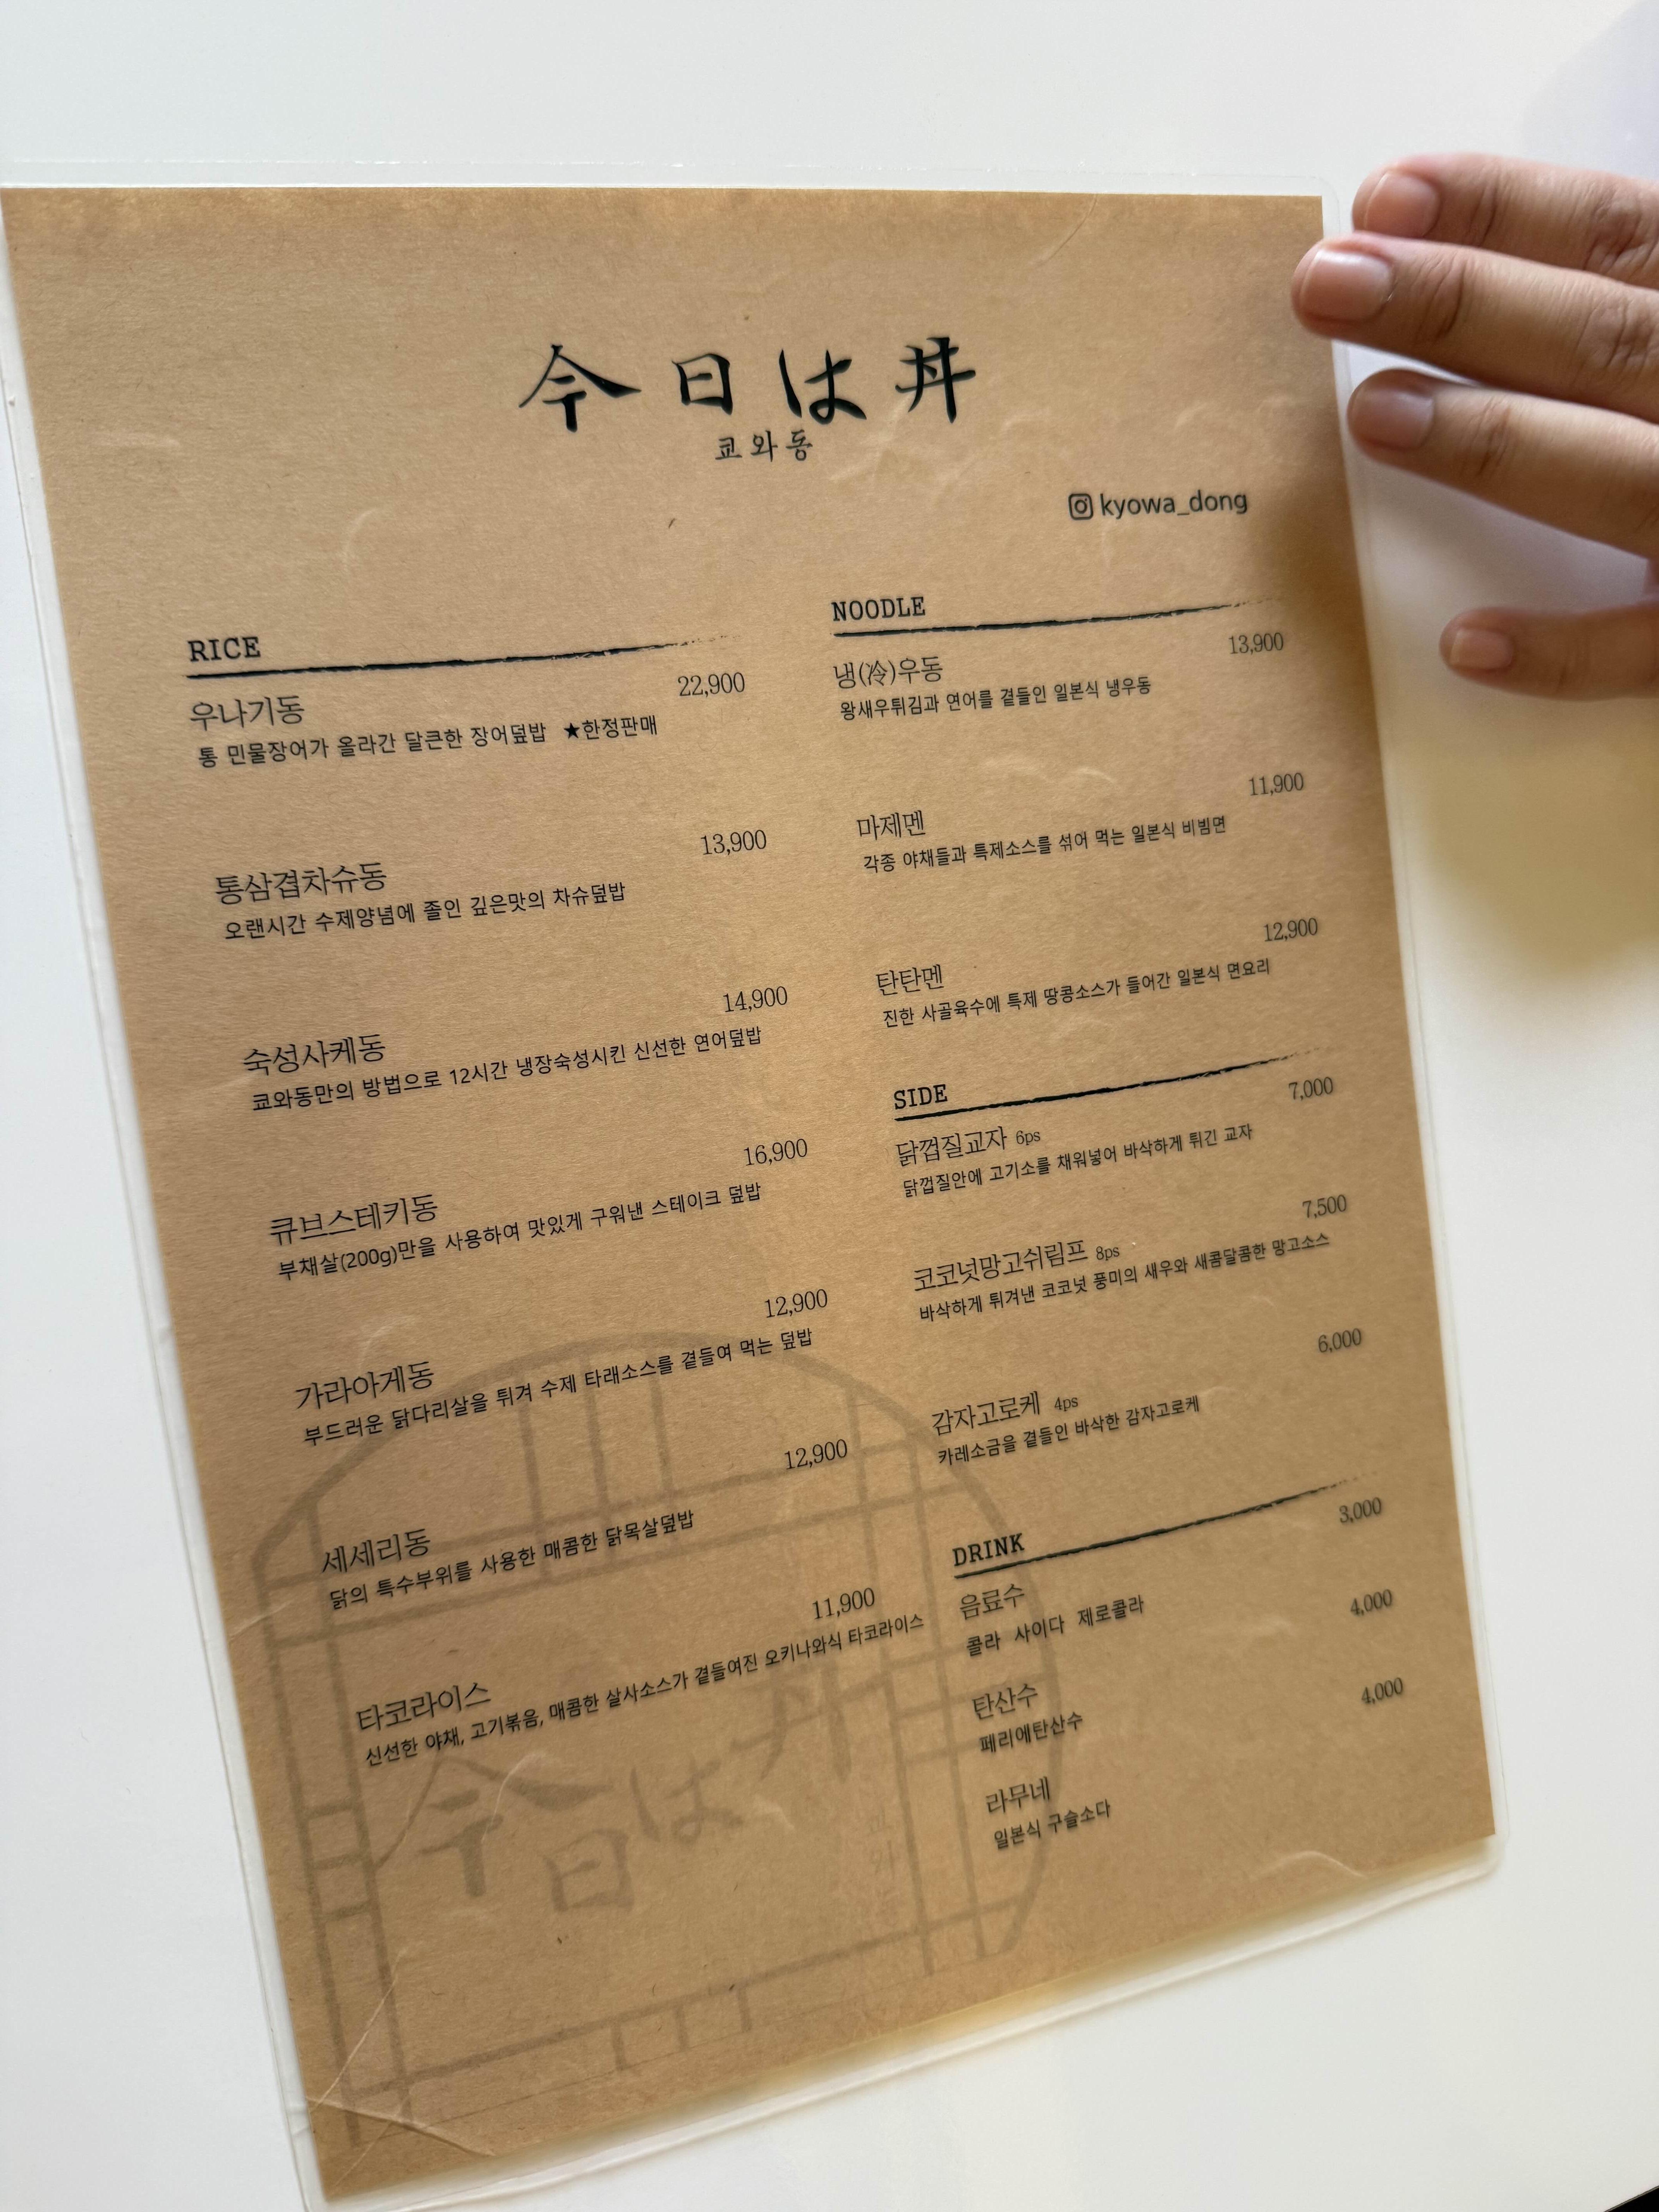 今日は丼
쿄와동
kyowa_dong
RICE
우나기동 22,900
통 민물장어가 올라간 달큰한 장어덮밥 ★한정판매
통삼겹차슈동 13,900
오랜시간 수제양념에 졸인 깊은맛의 차슈덮밥
숙성사케동 14,900
쿄와동만의 방법으로 12시간 냉장숙성시킨 신선한 연어덮밥
큐브스테키동 16,900
부채살(200g)만을 사용하여 맛있게 구워낸 스테이크 덮밥
가라아게동 12,900
부드러운 닭다리살을 튀겨 수제 타래소스를 곁들여 먹는 덮밥
세세리동 12,900
닭의 특수부위를 사용한 매콤한 닭목살덮밥
타코라이스 11,900
신선한 야채, 고기볶음, 매콤한 살사소스가 곁들여진 오키나와식 타코라이스
NOODLE
냉(冷)우동 13,900
왕새우튀김과 연어를 곁들인 일본식 냉우동
마제멘 11,900
각종 야채들과 특제소스를 섞어 먹는 일본식 비빔면
탄탄멘 12,900
진한 사골육수에 특제 땅콩소스가 들어간 일본식 면요리
SIDE
닭껍질교자 6ps 7,000
닭껍질안에 고기소를 채워넣어 바삭하게 튀긴 교자
코코넛망고쉬림프 8ps 7,500
바삭하게 튀겨낸 코코넛 풍미의 새우와 새콤달콤한 망고소스
감자고로케 4ps 6,000
카레소금을 곁들인 바삭한 감자고로케
DRINK
음료수 3,000
콜라 사이다 제로콜라
탄산수 4,000
페리에탄산수
라무네 4,000
일본식 구슬소다
今日は丼